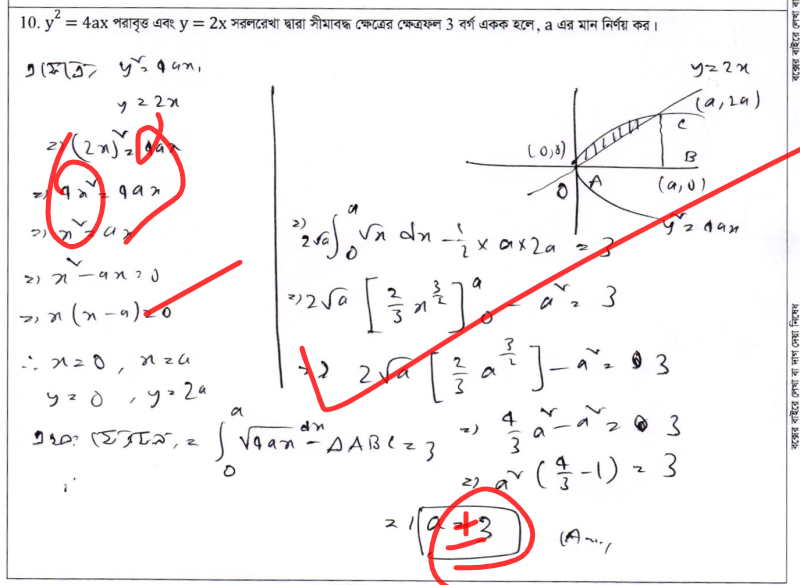 10. y² = 4ax পরাবৃত্ত এবং y = 2x সরলরেখা দ্বারা সীমাবদ্ধ ক্ষেত্রের ক্ষেত্রফল 3 বর্গ একক হলে, a এর মান নির্ণয় কর।
এক্ষেত্রে, y² = 4ax,
y = 2x
=> (2x)² = 4ax
=> 4x² = 4ax
=> x² = ax
=> x² - ax = 0
=> x(x-a) = 0
∴ x = 0, x = a
y = 0, y = 2a
∫₀ᵃ √4ax dx - ΔABC = 3
y = 2x
(a, 2a)
C
(0,0)
B
O
A
(a, 0)
y² = 4ax
=> 2√a ∫₀ᵃ √x dx - 1/2 × a × 2a = 3
=> 2√a [2/3 x^(3/2)]₀ᵃ - a² = 3
=> 2√a [2/3 a^(3/2)] - a² = 3
=> 4/3 a² - a² = 3
=> a² (4/3 - 1) = 3
=> a = ± 3
(Ans.)
বক্সের বাইরে লেখা বা দাগ দেয়া নিষেধ
বক্সের বাইরে লেখা বা